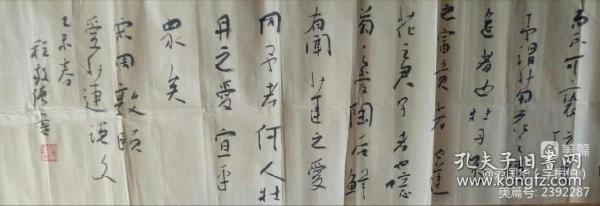 而不可亵
予谓菊花之
逸者也牡丹花
之富贵者也莲
花之君子者也噫
菊之爱陶后鲜
有闻莲之爱
同予者何人牡
丹之爱宜乎
众矣
宋周敦颐
爱莲说文
乙未春
程
美篇
孔夫子旧书网
www.kongfz.com
美篇号: 2392287